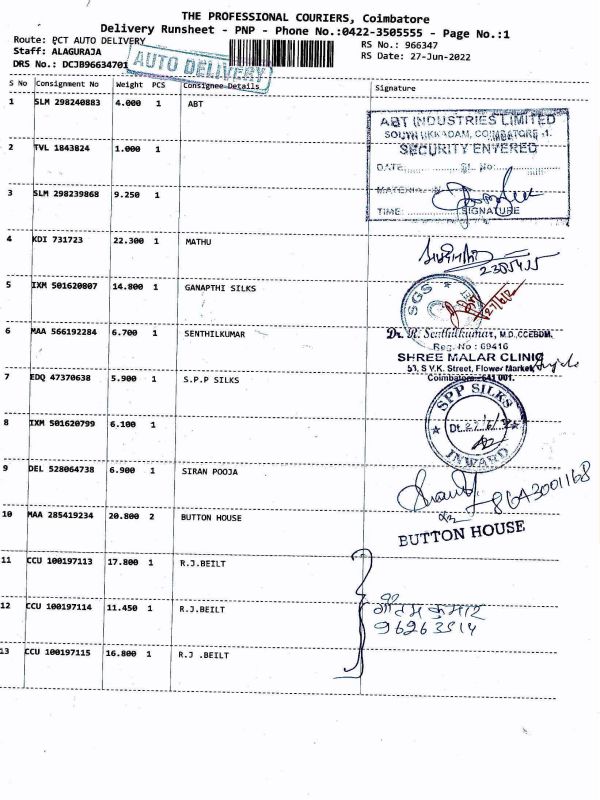 THE PROFESSIONAL COURIERS, Coimbatore
Delivery Runsheet - PNP - Phone No.:0422-3505555 - Page No.:1
Route: PCT AUTO DELIVERY
RS No.: 966347
Staff: ALAGURAJA
RS Date: 27-Jun-2022
DRS No.: DCJB96634701
AUTO DELIVERY
S No Consignment No Weight PCS Consignee Details Signature
1 SLM 298240883 4.000 1 ABT
ABT INDUSTRIES LIMITED
COIMBATORE
SECURITY ENTERED
2 TVL 1843824 1.000 1
DATE SL. No:
3 SLM 298239868 9.250 1
TIME: SIGNATURE
4 KDI 731723 22.300 1 MATHU
5 IXM 501620807 14.800 1 GANAPTHI SILKS
SGS
27/6/2
6 MAA 566192284 6.700 1 SENTHILKUMAR
Dr. R. Senthilkumar, M.D.,CCEBDM.
Reg. No : 69416
SHREE MALAR CLINIC
53, S V.K. Street, Flower Market,
Coimbatore - 641 001.
7 EDQ 47370638 5.900 1 S.P.P SILKS
SPP SILKS
Dt.
INWARD
8 IXM 501620799 6.100 1
9 DEL 528064738 6.900 1 SIRAN POOJA
10 MAA 285419234 20.800 2 BUTTON HOUSE
BUTTON HOUSE
11 CCU 100197113 17.800 1 R.J.BEILT
12 CCU 100197114 11.450 1 R.J.BEILT
कुमार
13 CCU 100197115 16.800 1 R.J .BEILT